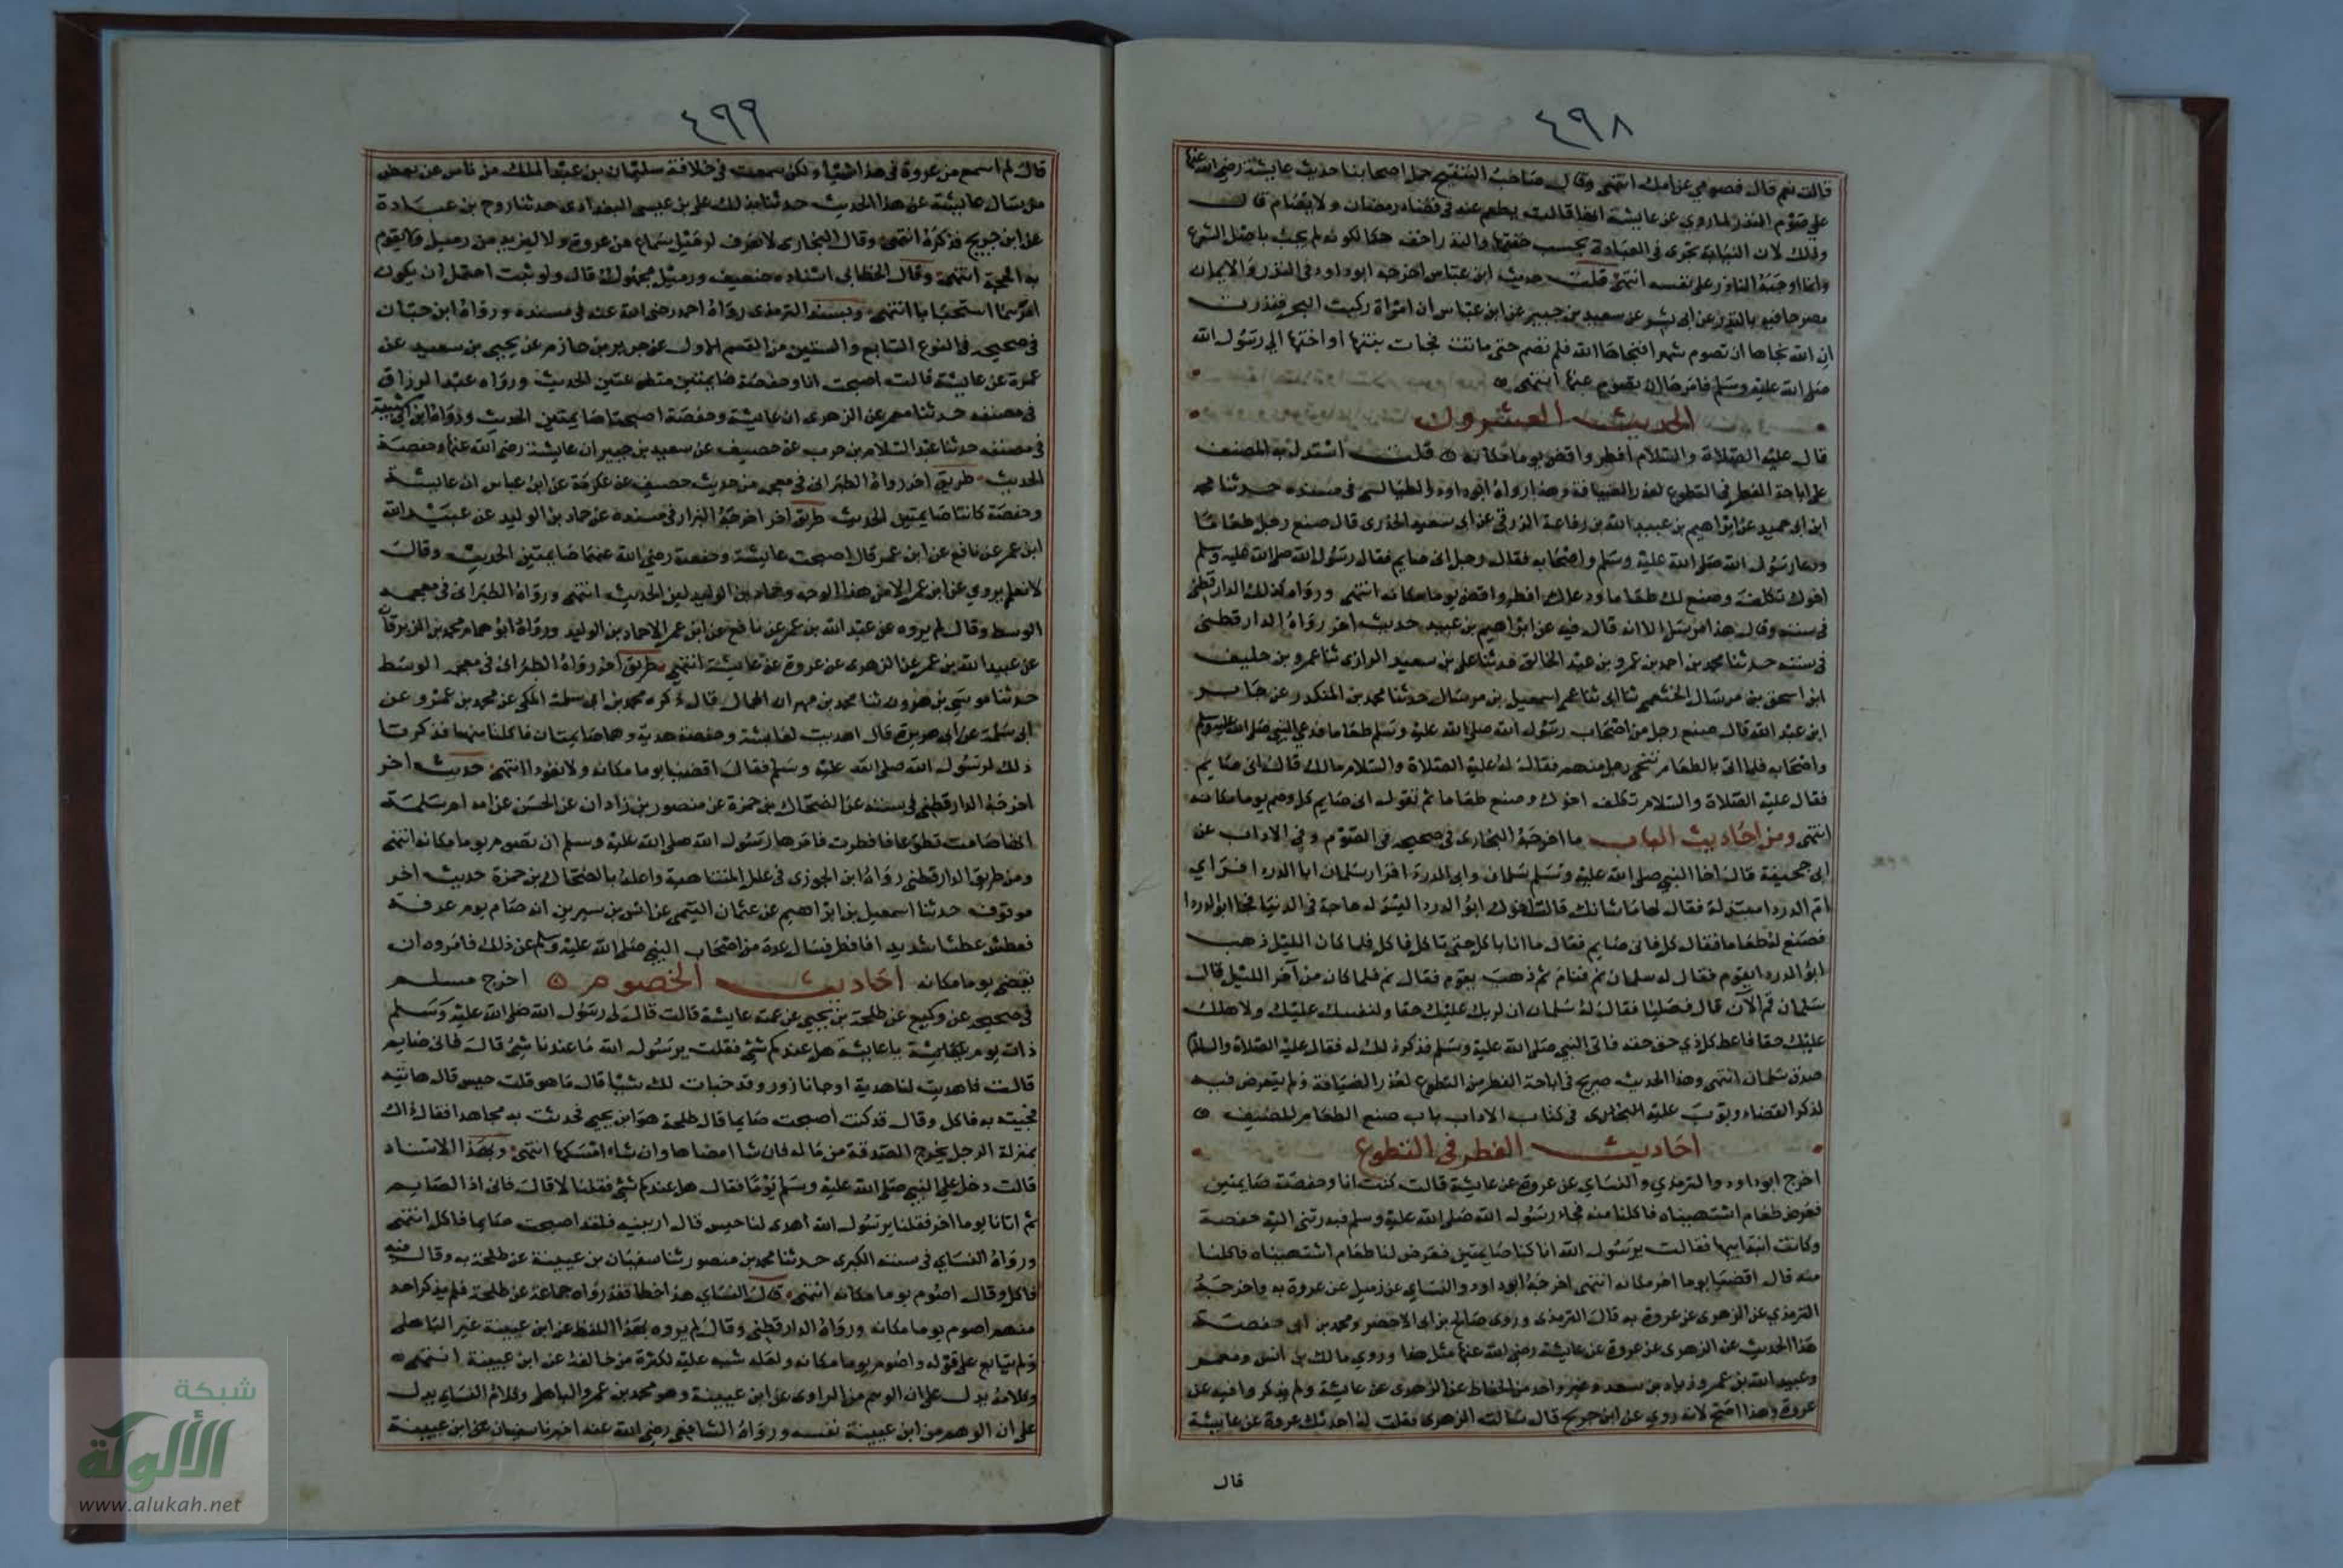 ٤٩٨
قالت نعم قال فصومي عن امك انتهى وقال صاحب التنقيح حمل اصحابنا حديث عايشة رضي الله عنها
على صوم النذر لما روي عن عايشة انها قالت يطعم عنه في قضاء رمضان ولا يقضام قالت
وذلك لان النيابة تجرى في العبادة بحسب خفتها والنذر اخف حكما لكونه لم يجب باصل الشرع
وانما اوجبه الناذر على نفسه انتهى قلت حديث ابن عباس اخرجه ابو داود في النذر والايمان
مصرحا فيه بالنذر عن ابى بشر عن سعيد بن جبير عن ابن عباس ان امراة ركبت البحر فنذرت
ان الله نجاها ان تصوم شهرا فنجاها الله فلم تصم حتى ماتت فجات بنتها او اختها الي رسول الله
صلى الله عليه وسلم فامرها ان تصوم عنها انتهى
الحديث العشرون
قال عليه الصلاة والسلام افطر واقض يوما مكانه قلت استدل به المصنف
على اباحة الفطر في التطوع لعذر الضيافة وهذا رواه ابو داود الطيالسي في مسنده حدثنا محمد
ابن ابى حميد عن ابراهيم بن عبيد الله بن رفاعة الزرقي عن ابى سعيد الخدرى قال صنع رجل طعاما
ودعا رسول الله صلى الله عليه وسلم واصحابه فقال رجل انى صايم فقال رسول الله صلى الله عليه وسلم
اخوك تكلف وصنع لك طعاما ودعاك افطر واقض يوما مكانه انتهى ورواه كذلك الدارقطني
في سننه وقال هذا مرسل الا انه قال فيه عن ابراهيم بن عبيد حديث اخر رواه الدارقطنى
في سننه حدثنا محمد بن احمد بن عمرو بن عبد الخالق حدثنا على بن سعيد الرازى ثنا عمرو بن خليف
ابن اسحق بن مرسال الخثعمي ثنا ابى ثنا عمى اسمعيل بن مرسال حدثنا محمد بن المنكدر عن جابر
ابن عبد الله قال صنع رجل من اصحاب رسول الله صلى الله عليه وسلم طعاما فدعي النبي صلى الله عليه وسلم
واصحابه فلما اتى بالطعام تنحى رجل منهم فقال له عليه الصلاة والسلام مالك قال انى صايم
فقال عليه الصلاة والسلام تكلف اخوك وصنع طعاما ثم تقول انى صايم كل وصم يوما مكانه
انتهى ومن احاديث الباب ما اخرجه البخارى في صحيحه في الصوم وفي الاداب عن
ابى جحيفة قال اخا النبي صلى الله عليه وسلم سلمان وابى الدردا فزار سلمان ابا الدردا فراي
ام الدردا مبتذلة فقال لها ما شانك قالت اخوك ابو الدردا ليس له حاجة في الدنيا فجا ابو الدردا
فصنع له طعاما فقال كل فانى صايم فقال ما انا باكل حتى تاكل فاكل فلما كان الليل ذهب
ابو الدردا يقوم فقال له سلمان نم فنام ثم ذهب يقوم فقال نم فلما كان من آخر الليل قال
سلمان قم الآن قال فصليا فقال له سلمان ان لربك عليك حقا ولنفسك عليك ولاهلك
عليك حقا فاعط كل ذي حق حقه فاتى النبي صلى الله عليه وسلم فذكر ذلك له فقال عليه الصلاة والسلام
صدق سلمان انتهى وهذا الحديث صريح في اباحة الفطر من التطوع لعذر الضيافة ولم يتعرض فيه
لذكر القضاء وبوب عليه البخارى في كتاب الاداب باب صنع الطعام للضيف
احاديث الفطر في التطوع
اخرج ابو داود والترمذي والنساي عن عروة عن عايشة قالت كنت انا وحفصة صايمتين
فعرض طعام اشتهيناه فاكلنا منه فجاء رسول الله صلى الله عليه وسلم فبدرتنى اليه حفصة
وكانت ابنة ابيها فقالت يرسول الله انا كنا صايمتين فعرض لنا طعام اشتهيناه فاكلنا
منه قال اقضيا يوما اخر مكانه انتهى اخرجه ابو داود والنساي عن زميل عن عروة به واخرجه
الترمذي عن الزهرى عن عروة به قال الترمذى وروى صالح بن ابى الاخضر ومحمد بن ابى حفصة
هذا الحديث عن الزهرى عن عروة عن عايشة رضي الله عنها مثل هذا وروي مالك بن انس ومعمر
وعبيد الله بن عمر وزياد بن سعد وغير واحد من الحفاظ عن الزهرى عن عايشة ولم يذكروا فيه عن
عروة وهذا اصح لانه روي عن ابن جريج قال سالت الزهرى فقلت له احدثك عروة عن عايشة
قال
٤٩٩
قال لم اسمع من عروة في هذا شيا ولكن سمعت في خلافة سليمان بن عبد الملك من ناس عن بعض
من سال عايشة عن هذا الحديث حدثنا بذلك على بن عيسى البغدادى حدثنا روح بن عبادة
عن ابن جريج فذكره انتهى وقال البخارى لا يعرف لزميل سماع من عروة ولا ليزيد من زميل ولا تقوم
به الحجة انتهى وقال الخطابى اسناده ضعيف وزميل مجهول قال ولو ثبت احتمل ان يكون
امرهما استحبابا انتهى وبسند الترمذى رواه احمد رضى الله عنه في مسنده ورواه ابن حبان
في صحيحه في النوع السابع والستين من القسم الاول عن جرير بن حازم عن يحيى بن سعيد عن
عمرة عن عايشة قالت اصبحت انا وحفصة صايمتين متطوعتين الحديث ورواه عبد الرزاق
في مصنفه حدثنا معمر عن الزهرى ان عايشة وحفصة اصبحتا صايمتين الحديث ورواه ابن ابى شيبة
في مصنفه حدثنا عبد السلام بن حرب عن خصيف عن سعيد بن جبير ان عايشة رضى الله عنها وحفصة
الحديث طريق اخر رواه الطبرانى في معجمه من حديث خصيف عن عكرمة عن ابن عباس ان عايشة
وحفصة كانتا صايمتين الحديث طريق اخر اخرجه البزار في مسنده عن حماد بن الوليد عن عبيد الله
ابن عمر عن نافع عن ابن عمر قال اصبحت عايشة وحفصة رضي الله عنهما صايمتين الحديث وقال
لا نعلم يروي عن ابن عمر الا من هذا الوجه وحماد بن الوليد لين الحديث انتهى ورواه الطبرانى في معجمه
الوسط وقال لم يروه عن عبد الله بن عمر عن نافع عن ابن عمر الا حماد بن الوليد ورواه ابو همام محمد بن الزبرقان
عن عبيد الله بن عمر عن الزهرى عن عروة عن عايشة انتهى طريق اخر رواه الطبرانى في معجمه الوسط
حدثنا موسى بن هرون ثنا محمد بن مهران الجمال قال ذكره محمد بن ابى سلمة المكى عن محمد بن عمرو عن
ابى سلمة عن ابى هريرة قال اهديت لعايشة وحفصة هدية وهما صايمتان فاكلنا منها فذكرتا
ذلك لرسول الله صلى الله عليه وسلم فقال اقضيا يوما مكانه ولا تعودا انتهى حديث اخر
اخرجه الدارقطني في سننه عن الضحاك بن حمزة عن منصور بن زادان عن الحسن عن امه ام سلمة
انها صامت تطوعا فافطرت فامرها رسول الله صلى الله عليه وسلم ان تصوم يوما مكانه انتهى
ومن طريق الدارقطني رواه ابن الجوزى في علل المتناهية واعله بالضحاك بن حمزة حديث اخر
موقوف حدثنا اسمعيل بن ابراهيم عن عثمان البتمى عن انس بن سيرين انه صام يوم عرفة
فعطش عطشا شديدا فافطر فسال عدة من اصحاب النبي صلى الله عليه وسلم عن ذلك فامروه ان
يقضى يوما مكانه احاديث الخصوم اخرج مسلم
في صحيحه عن وكيع عن طلحة بن يحيي عن عمته عايشة قالت قال لى رسول الله صلى الله عليه وسلم
ذات يوم يا عايشة هل عندكم شئ فقلت يرسول الله ما عندنا شئ قال فانى صايم
قالت فاهديت لنا هدية او جانا زور وقد خبات لك شيا قال ما هو قلت حيس قال هاتيه
فجيت به فاكل وقال قد كنت اصبحت صايما قال طلحة هو ابن يحيى فحدثت به مجاهدا فقال ذاك
بمنزلة الرجل يخرج الصدقة من ماله فان شا امضاها وان شاء امسكها انتهى وبهذا الاسناد
قالت دخل على النبي صلى الله عليه وسلم يوما فقال هل عندكم شئ فقلنا لا قال فانى اذا الصايم
ثم اتانا يوما اخر فقلنا يرسول الله اهدى لنا حيس قال ارينيه فلقد اصبحت صايما فاكل انتهى
ورواه النساي في سننه الكبرى حدثنا محمد بن منصور ثنا سفيان بن عيينة عن طلحة به وقال فيه
فاكل وقال اصوم يوما مكانه انتهى قال النساي هذا خطا فقد رواه جماعة عن طلحة فلم يذكر احد
منهم اصوم يوما مكانه ورواه الدارقطنى وقال لم يروه بهذا اللفظ عن ابن عيينة غير الباهلى
ولم يتابع على قوله واصوم يوما مكانه ولعله شبه عليه لكثرة من خالفه عن ابن عيينة انتهى
وكلامه يدل على ان الوهم من الراوى عن ابن عيينة وهو محمد بن عمرو الباهلى وكلام النساي يدل
على ان الوهم من ابن عيينة نفسه ورواه الشافعي رضى الله عنه اخبرنا سفيان عن ابن عيينة
شبكة
الألوكة
www.alukah.net